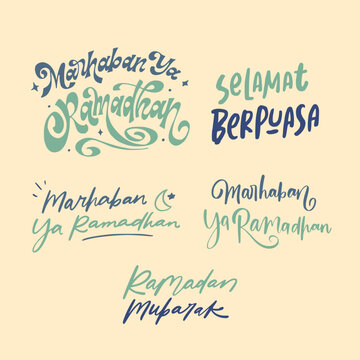 Marhaban Ya
Ramadhan
SELAMAT
BERPUASA
Marhaban
Ya Ramadhan
Marhaban
Ya Ramadhan
Ramadan
Mubarak